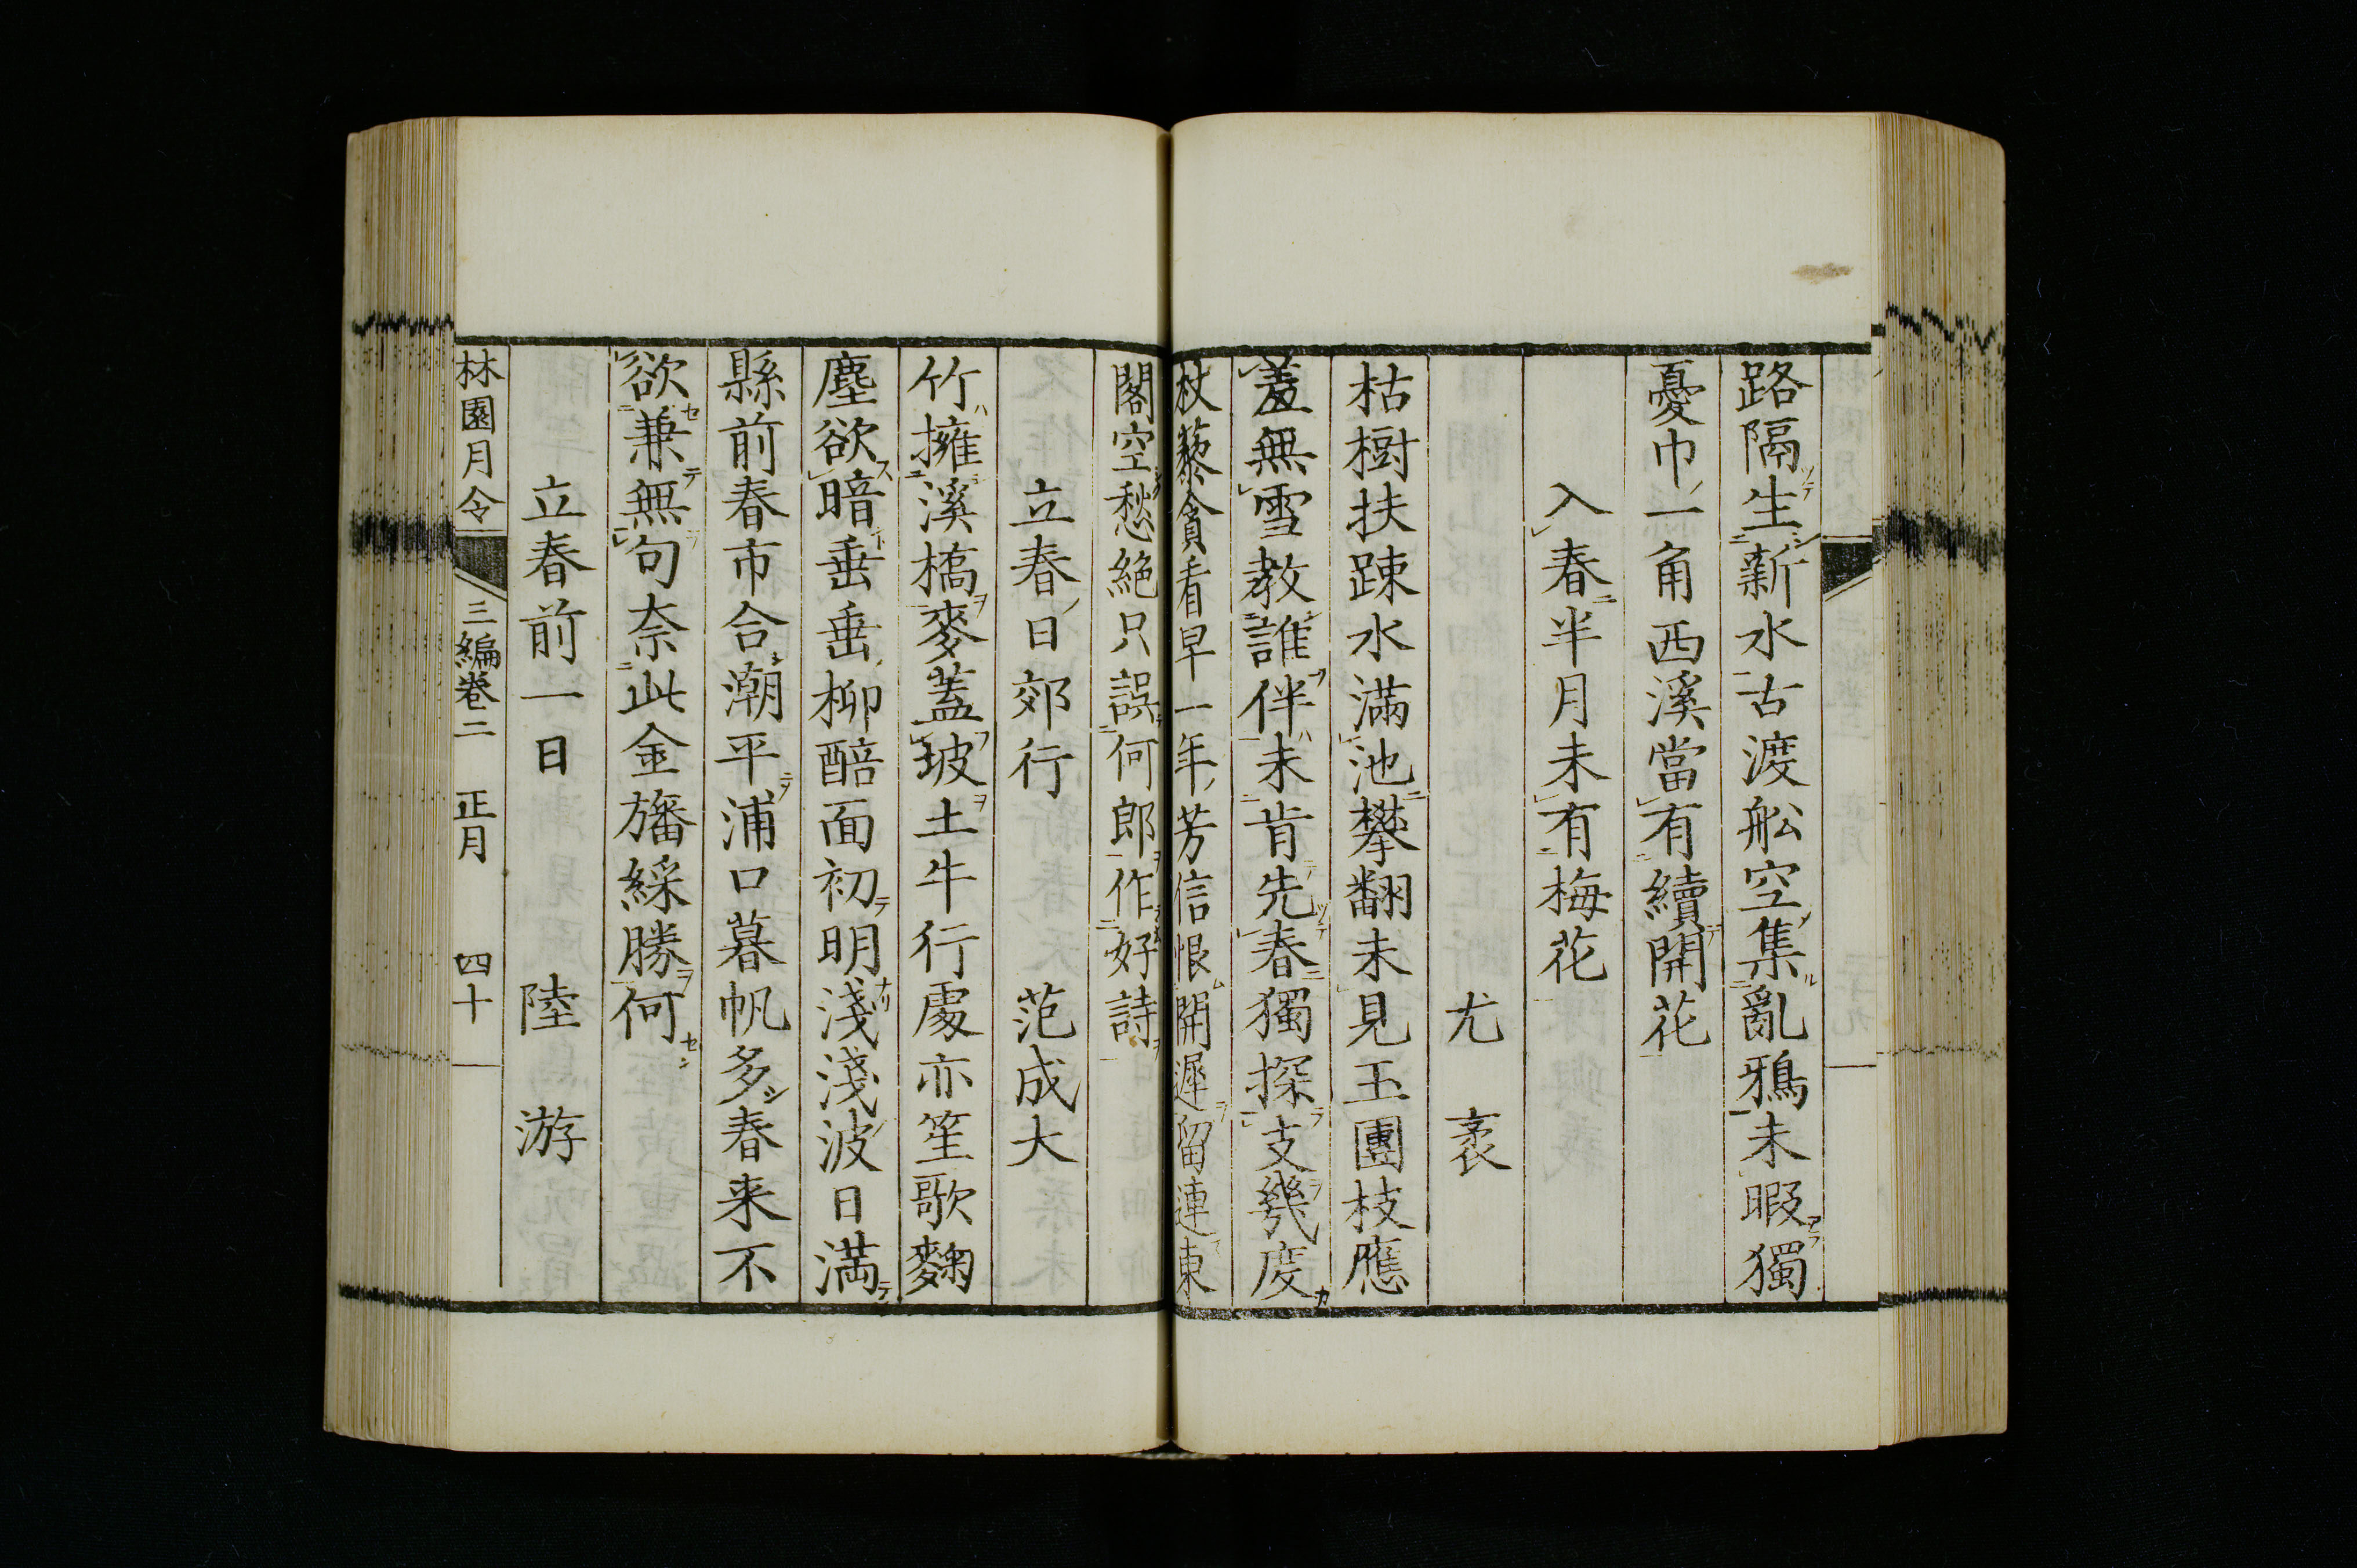 路隔生新水古渡舩空集亂鴉未暇獨
憂巾一角西溪當有續開花
入春半月未有梅花
尤袤
枯樹扶踈水滿池攀翻未見玉團枝應
羞無雪教誰伴未肯先春獨探支幾度
杖藜貪看早一年芳信恨開遲留連東
閣空愁絶只誤何郎作好詩
立春日郊行 范成大
竹擁溪橋麥蓋坡土牛行處亦笙歌麴
塵欲暗垂垂柳醅面初明淺淺波日満
縣前春市合潮平浦口暮帆多春来不
欲兼無句奈此金旛綵勝何
立春前一日 陸游
林園月令 三編卷二 正月 四十